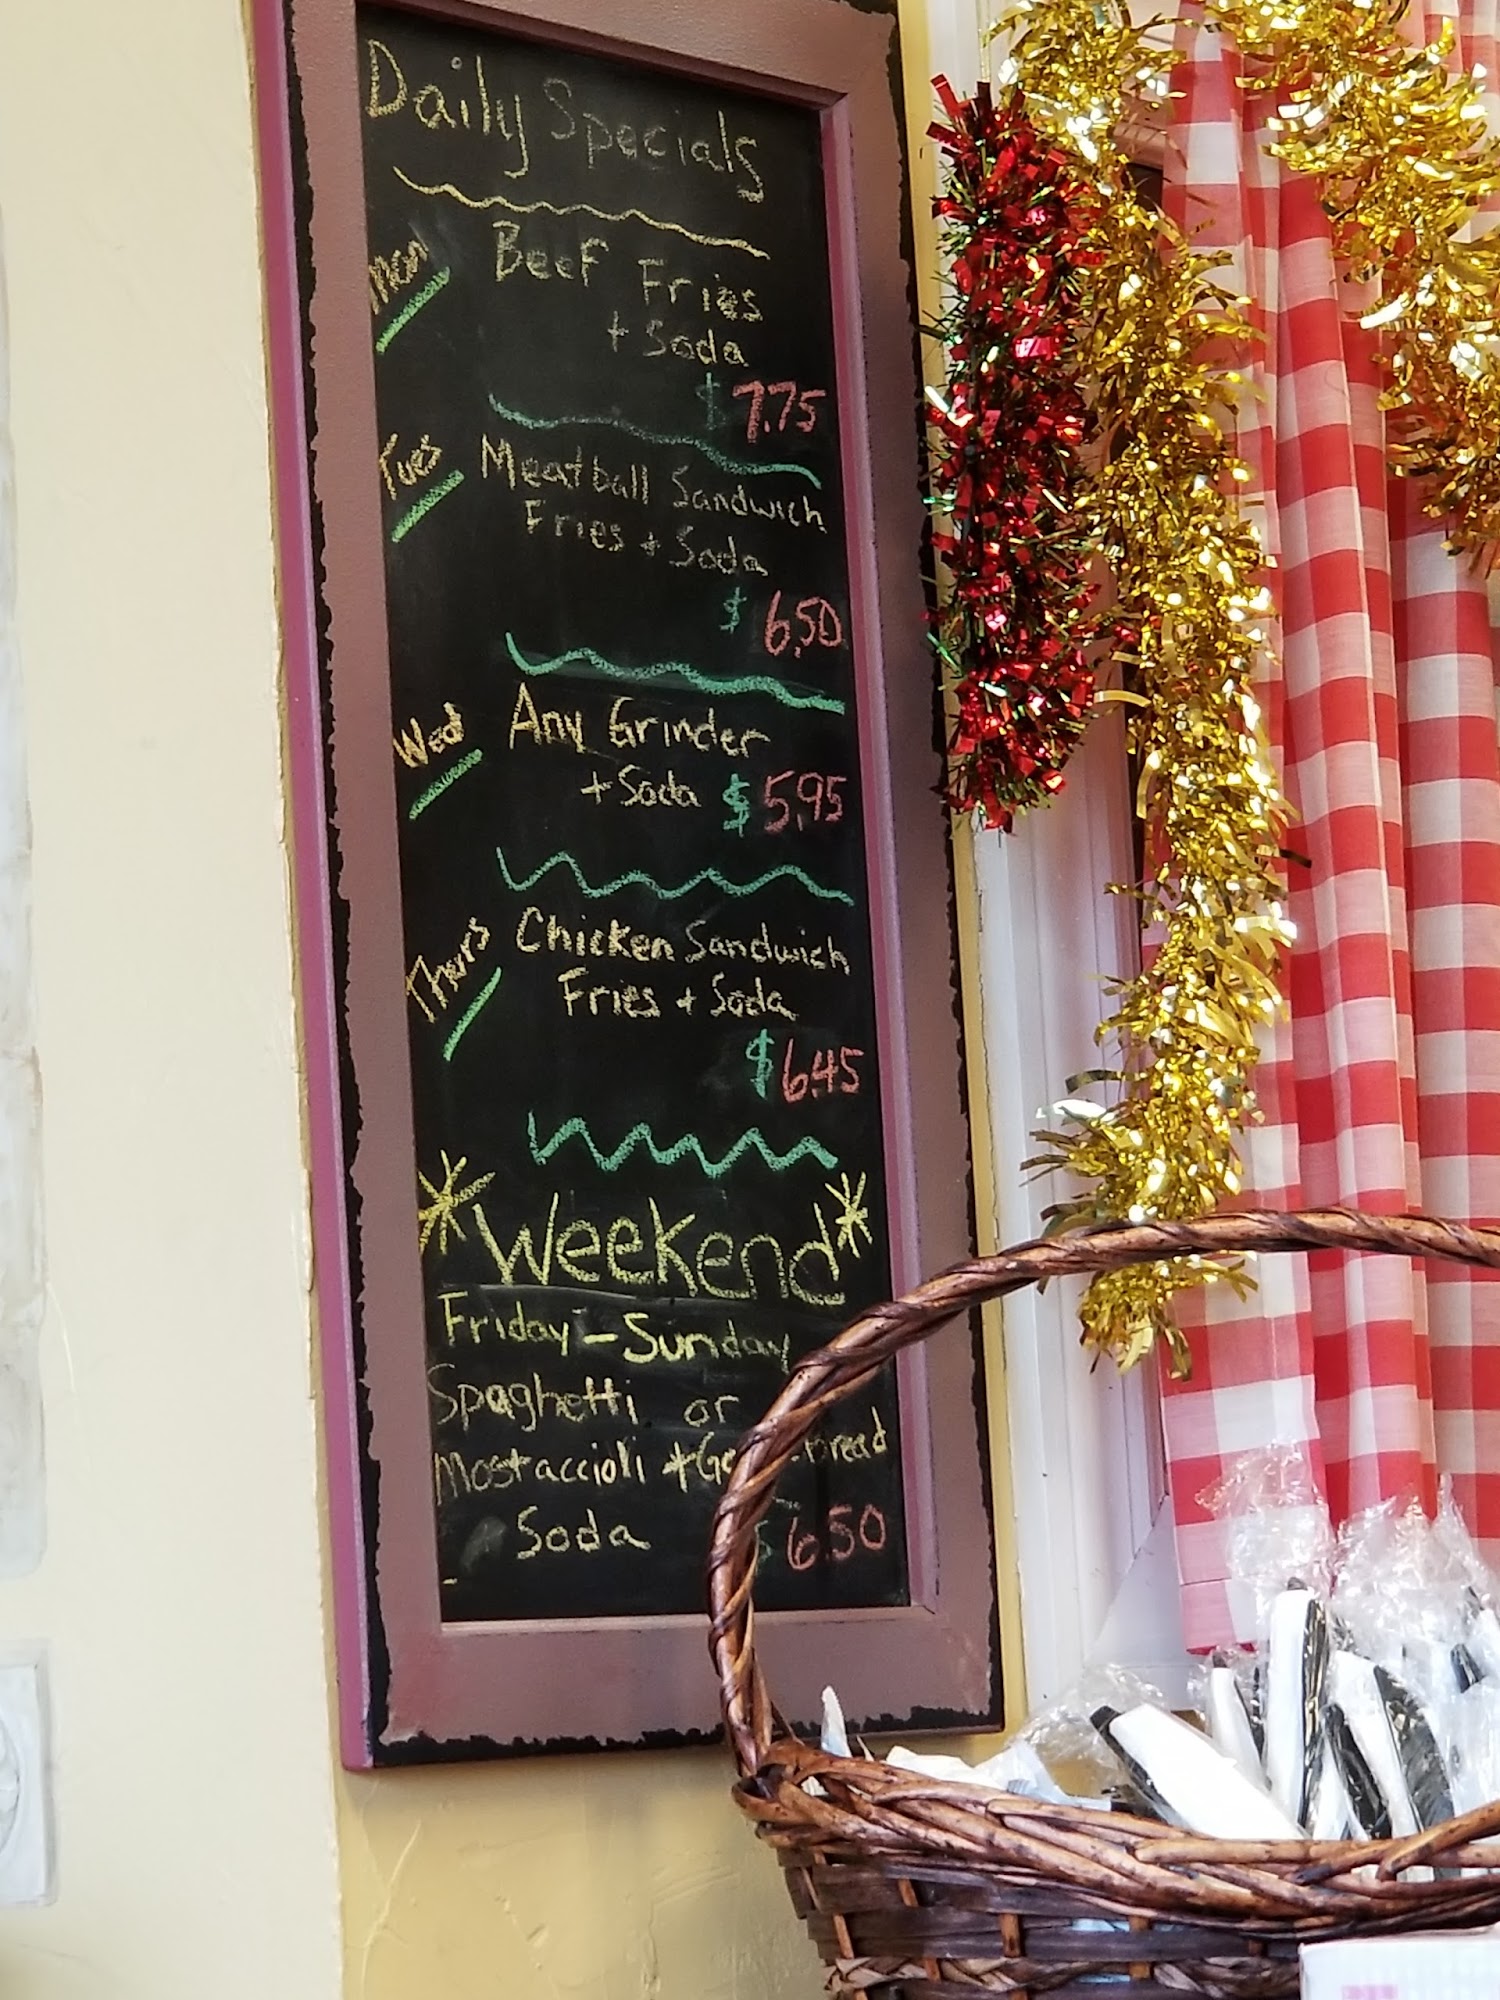 Daily Specials
Mon Beef Fries
+ Soda
$7.75
Tues Meatball Sandwich
Fries + Soda
$6.50
Wed Any Grinder
+ Soda $5.95
Thurs Chicken Sandwich
Fries + Soda
$6.45
*Weekend*
Friday - Sunday
Spaghetti or
Mostaccioli + Bread
Soda $6.50